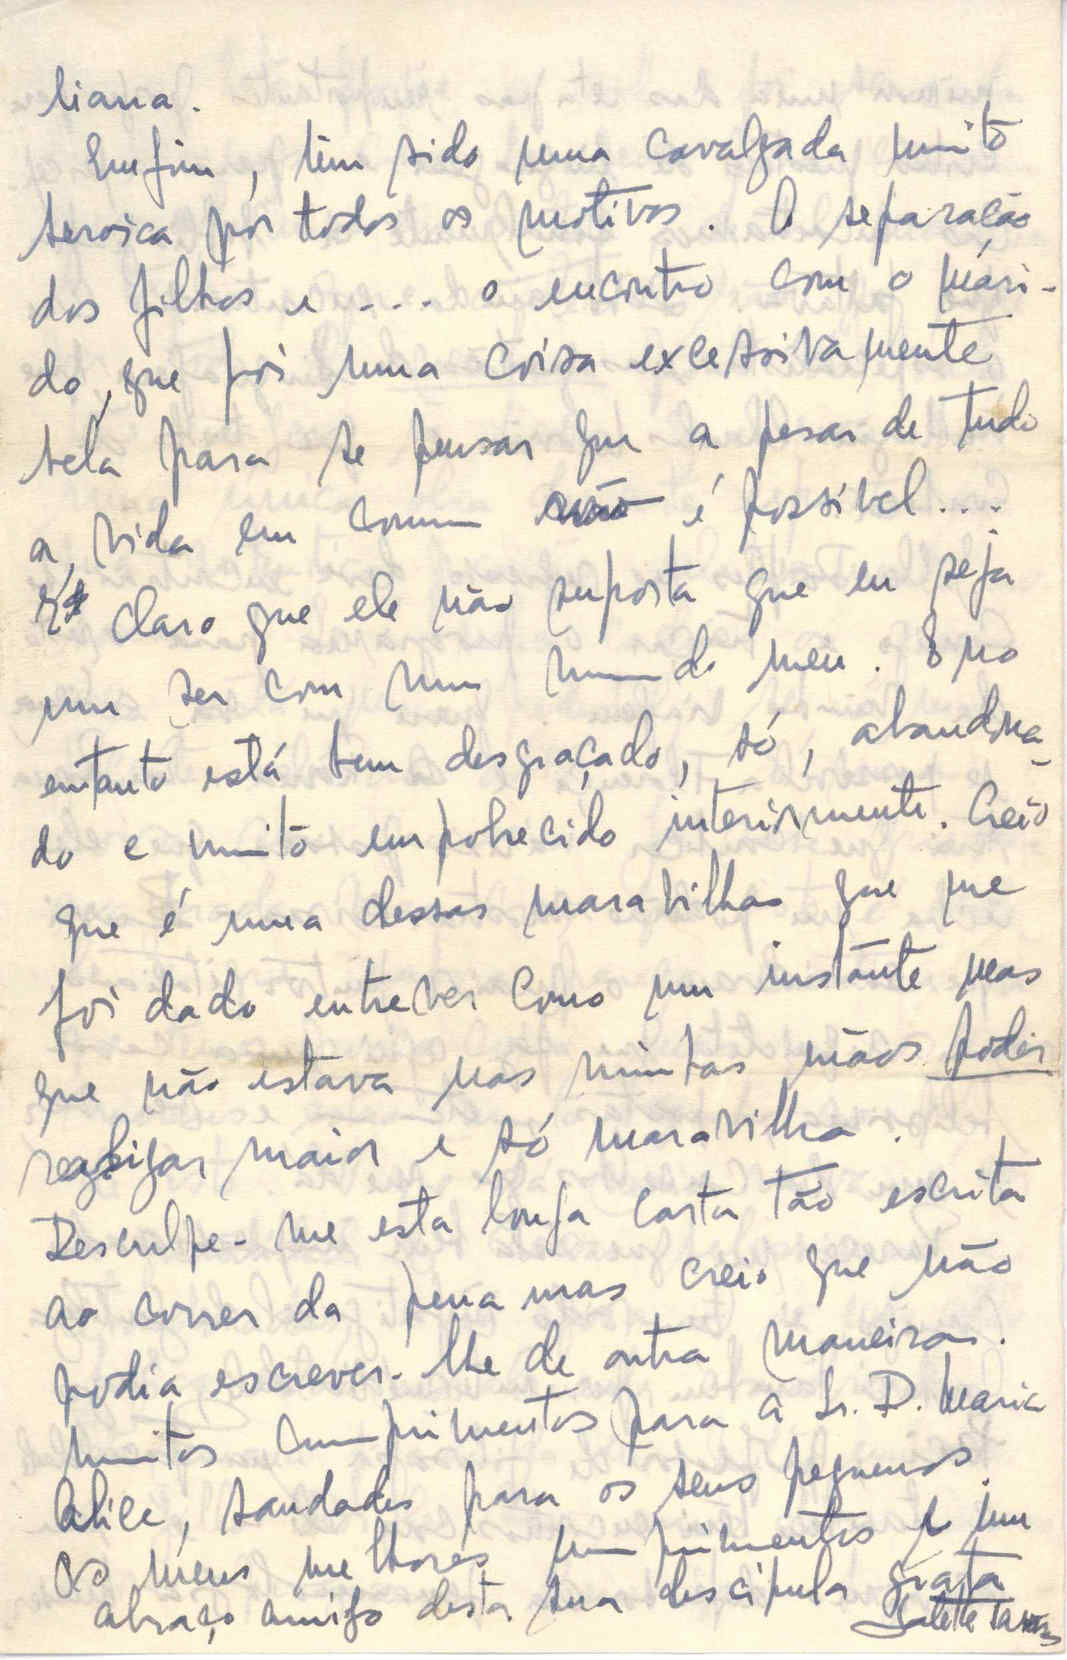 liana.
Enfim, tem sido uma cavalgada muito
heroica por todos os motivos. A separação
dos filhos e .... o encontro com o mari-
do, que foi uma coisa excessivamente
bela para se pensar que a pesar de tudo
a vida em comum é possível...
É claro que ele não suporta que eu seja
um ser com um mundo meu. E no
entanto está bem desgraçado, só, abandona-
do e muito empobrecido interiormente. Creio
que é uma dessas maravilhas que me
foi dado entrever como um instante mas
que não estava nas minhas mãos poder
realizar maior e só maravilha.
Desculpe-me esta longa carta tão escrita
ao correr da pena mas creio que não
podia escrever-lhe de outra maneira.
Muitos cumprimentos para a Sr. D. Maria
Alice, saudades para os seus pequenos.
Os meus melhores cumprimentos e um
abraço amigo desta sua descipula grata
Salette Tavares